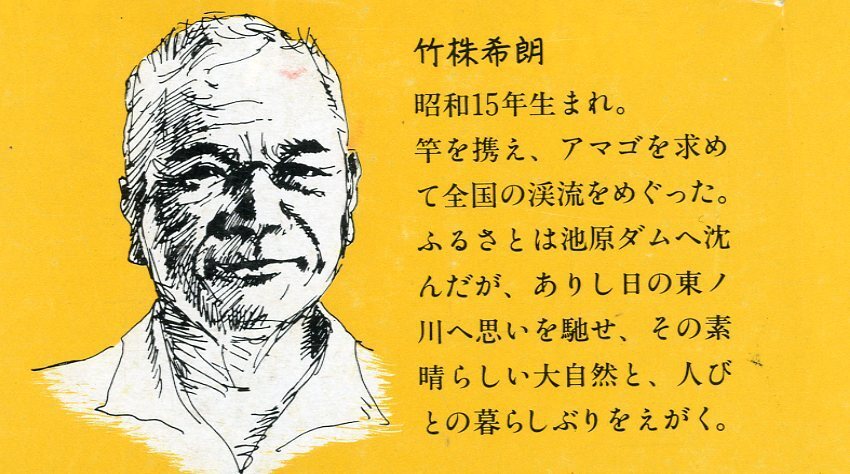 竹株希朗
昭和15年生まれ。
竿を携え、アマゴを求め
て全国の渓流をめぐった。
ふるさとは池原ダムへ沈
んだが、ありし日の東ノ
川へ思いを馳せ、その素
晴らしい大自然と、人び
との暮らしぶりをえがく。